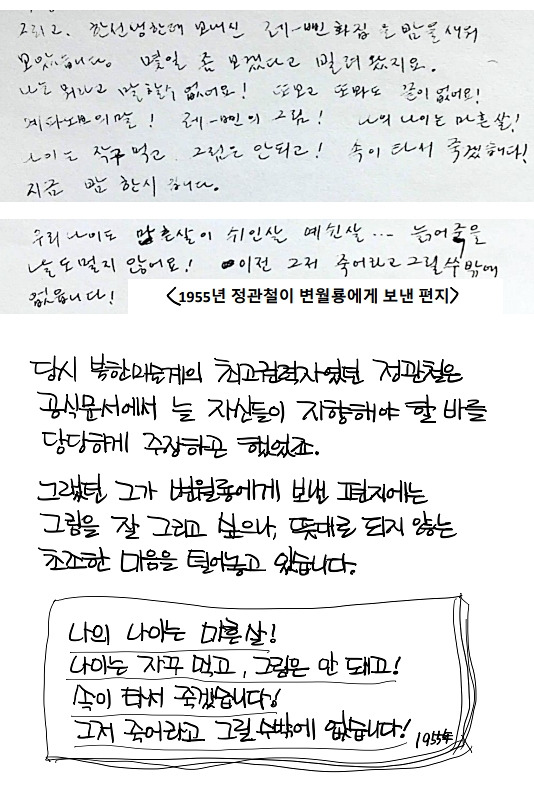 그리고, 한선생한테 보내신 레-삔 화집을 밤을 새워
보았습니다. 몇일 좀 보겠다고 빌려 왔지요.
나는 뭐라고 말할 수 없어요! 또보고 또봐도 끝이 없어요!
레-삔의 그림! 나의 나이는 마흔살!
나이는 작구 먹고 그림은 안되고! 속이 타서 죽겠습니다!
지금 밤 한시 입니다.
우리 나이도 마흔살이 쉬인살 예쉰살... 늙어죽을
날도 멀지 않어요! 이전 그저 죽어라고 그릴 수 밖에
없읍니다!
<1955년 정관철이 변월룡에게 보낸 편지>
당시 북한미술계의 최고권력자였던 정관철은
공식문서에서 늘 자신들이 지향해야 할 바를
당당하게 주장하곤 했었죠.
그랬던 그가 변월룡에게 보낸 편지에는
그림을 잘 그리고 싶으나, 뜻대로 되지 않는
초조한 마음을 털어놓고 있습니다.
나의 나이는 마흔살!
나이는 자꾸 먹고, 그림은 안 돼고!
속이 타서 죽겠습니다!
그저 죽어라고 그릴 수밖에 없습니다!
1955年